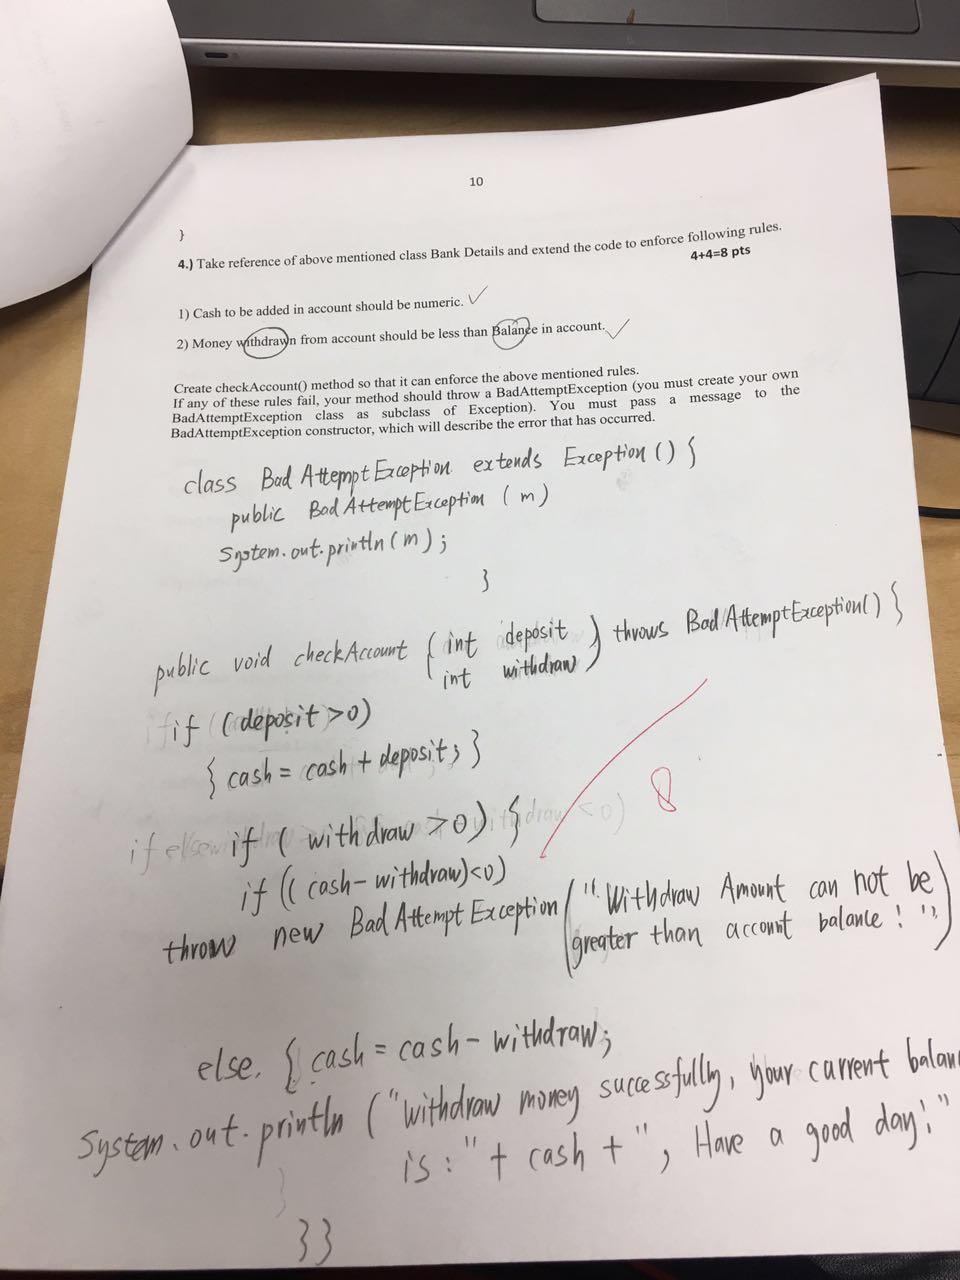 10
}
4.) Take reference of above mentioned class Bank Details and extend the code to enforce following rules.
4+4=8 pts
1) Cash to be added in account should be numeric.
2) Money withdrawn from account should be less than Balance in account.
Create checkAccount() method so that it can enforce the above mentioned rules.
If any of these rules fail, your method should throw a BadAttemptException (you must create your own
BadAttemptException class as subclass of Exception). You must pass a message to the
BadAttemptException constructor, which will describe the error that has occurred.
class Bad Attempt Exception extends Exception () {
public Bad Attempt Exception (m)
System.out.println(m);
}
public void checkAccount (int deposit
int withdraw) throws Bad AttemptException() {
if (deposit >0)
{ cash = cash + deposit; }
if ( withdraw >0) {
8
if (( cash- withdraw)<0)
throw new Bad Attempt Exception ("Withdraw Amount can not be
greater than account balance ! ")
else. { cash = cash - withdraw;
System.out.println ("withdraw money successfully, your current balan
is : " + cash + ", Have a good day!"
}
}}